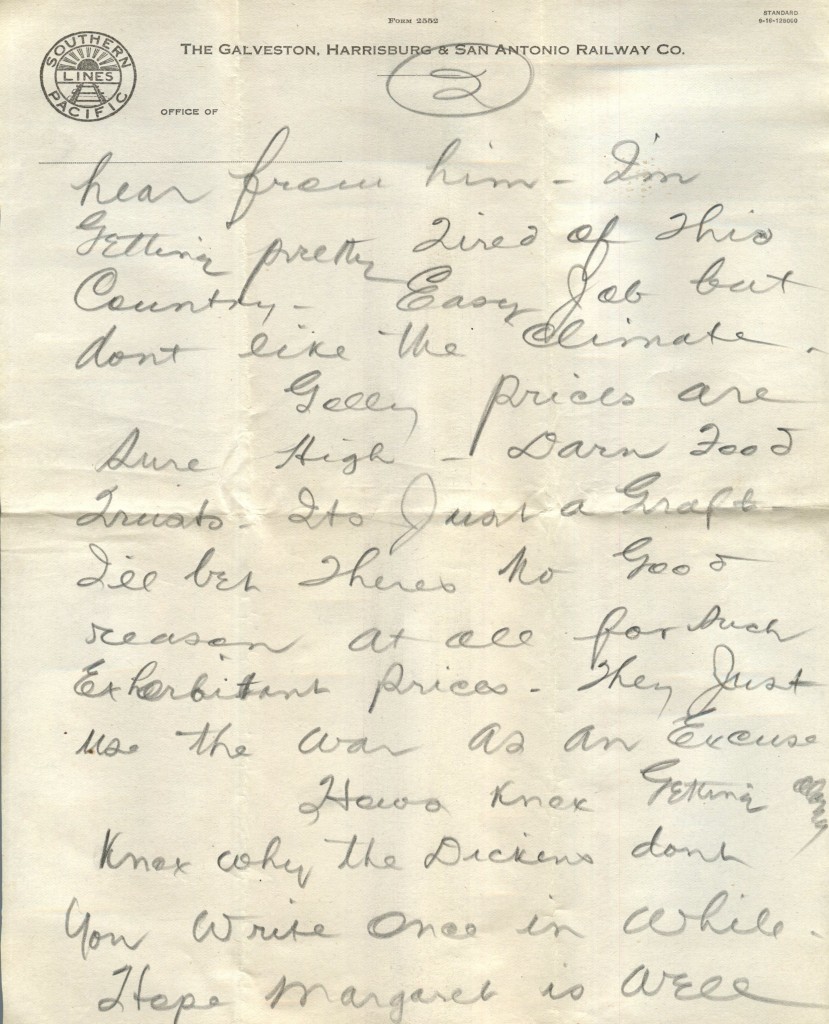 FORM 2582
STANDARD
THE GALVESTON, HARRISBURG & SAN ANTONIO RAILWAY CO.
SOUTHERN PACIFIC
LINES
2
OFFICE OF
hear from him - I'm
Getting pretty Tired of This
Country - Easy Job but
dont like the Climate.
Golly prices are
Sure High - Darn Food
Trusts - Its Just a Graft -
I'll bet Theres No Good
reason at all for Such
Exhorbitant prices - They Just
use the war as an Excuse
Hows Knox Getting
Knox why the Dickens dont
You Write Once in While.
Hope Margaret is Well